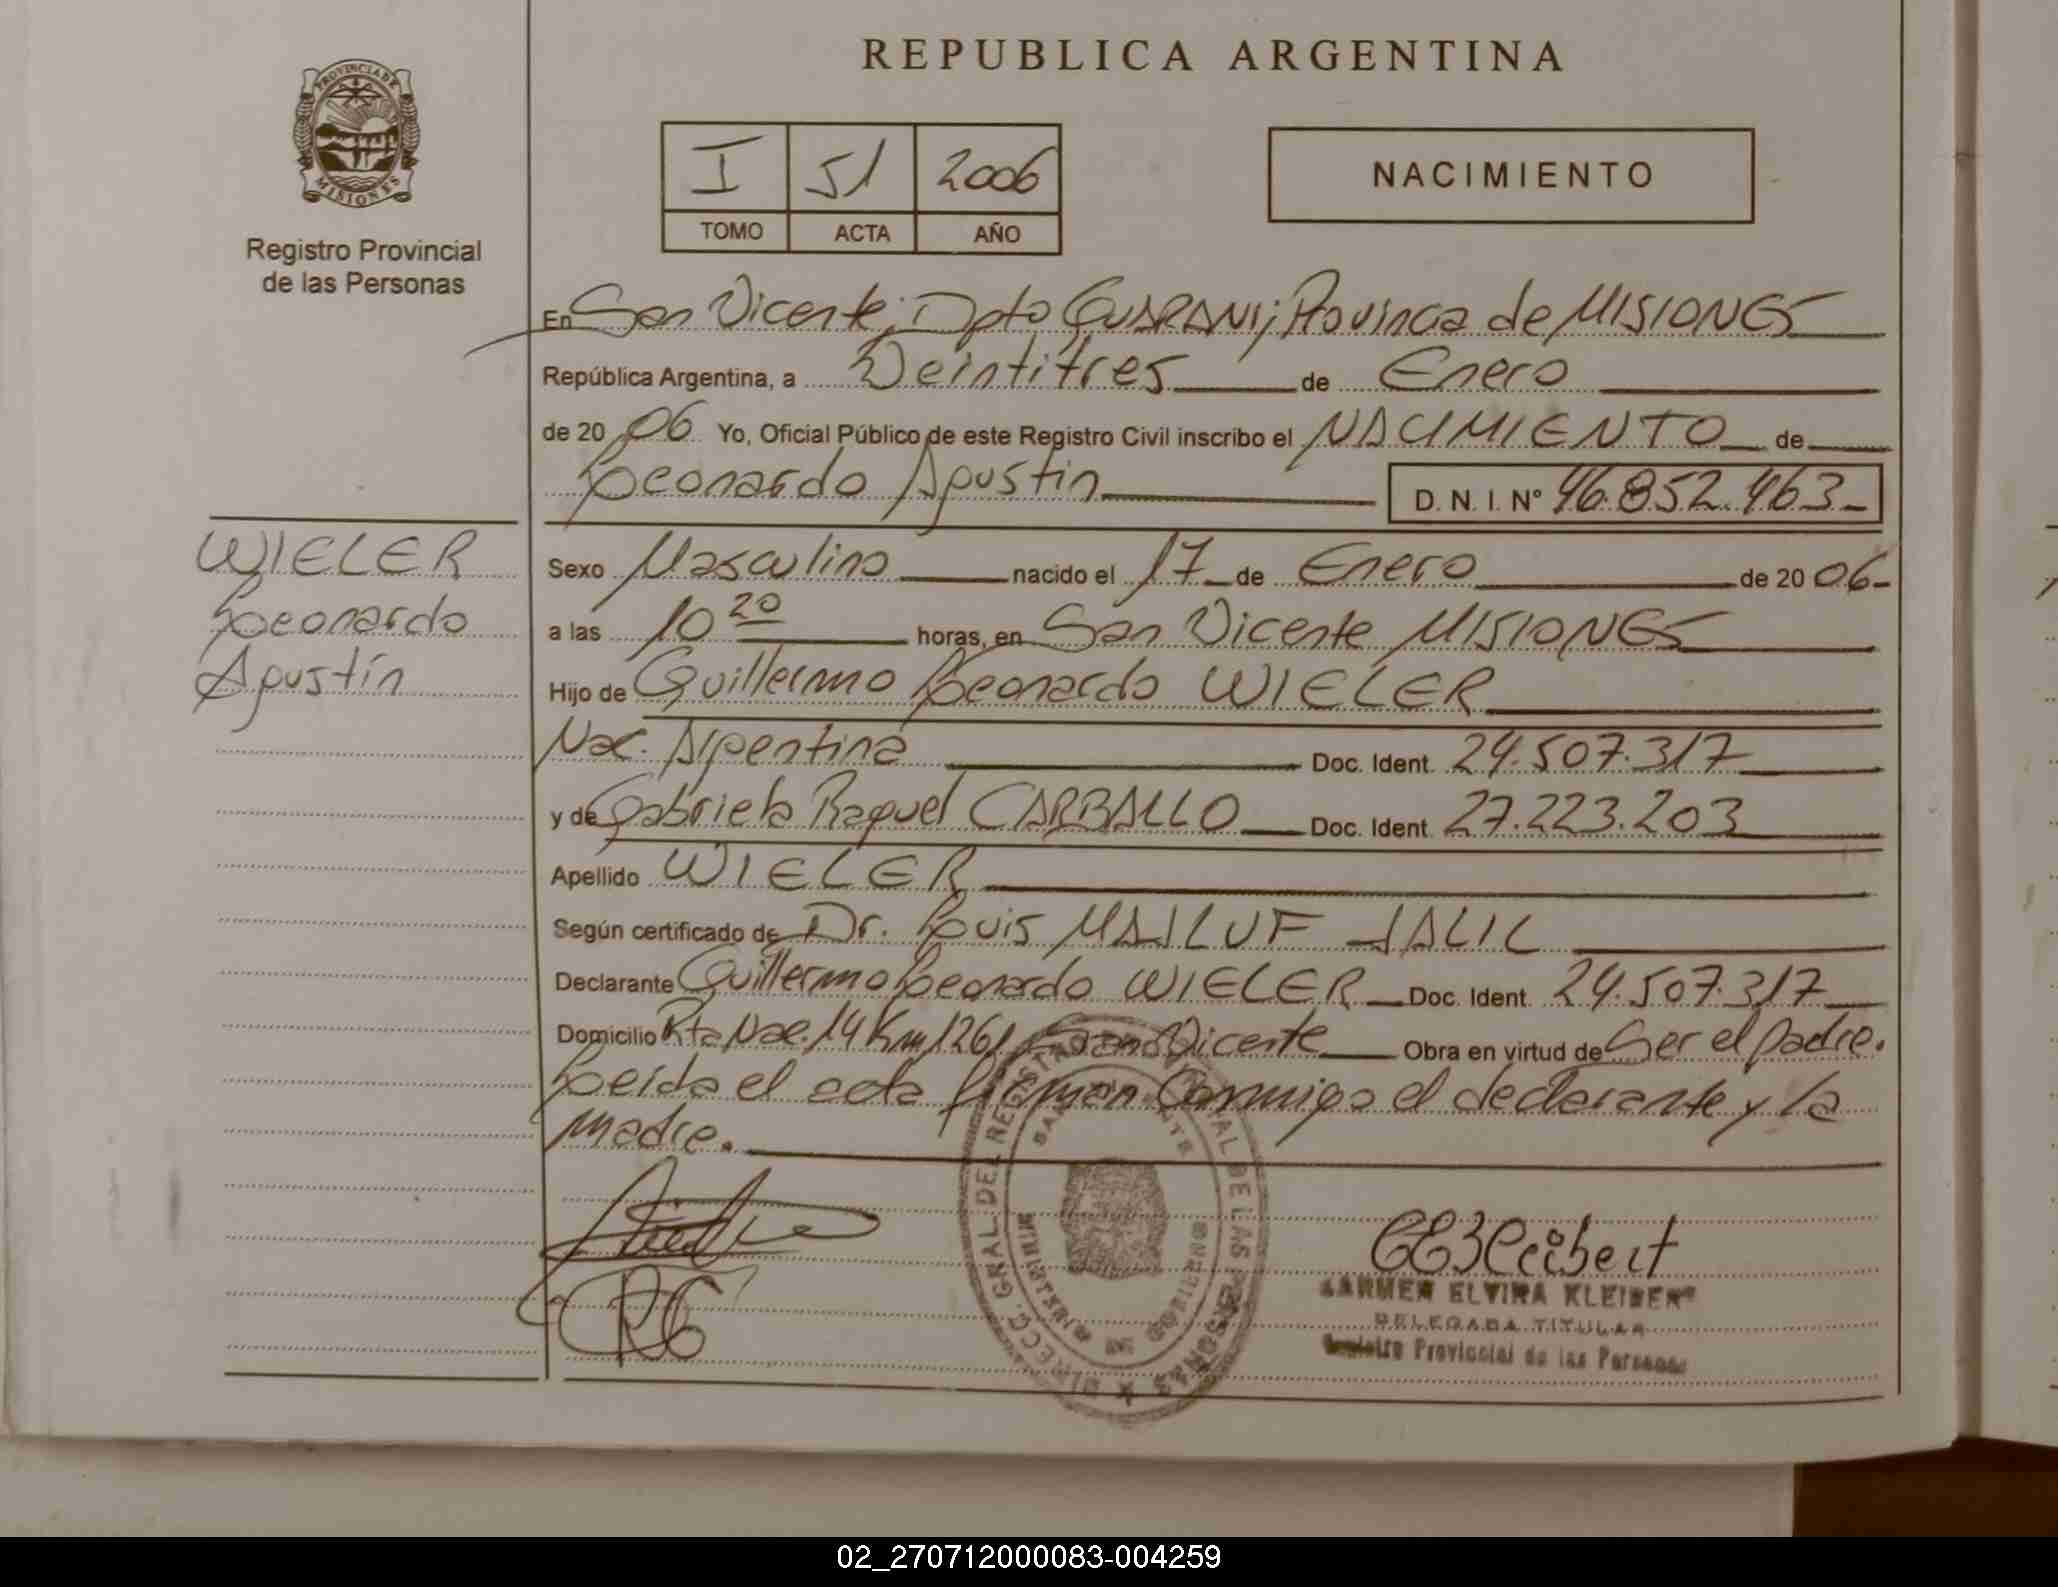 REPUBLICA ARGENTINA
PROVINCIA DE
MISIONES
Registro Provincial
de las Personas
I 51 2006
TOMO ACTA AÑO
NACIMIENTO
En San Vicente; Dpto GUARANI; Provincia de MISIONES
República Argentina, a Veintitres de Enero
de 2006 Yo, Oficial Público de este Registro Civil inscribo el NACIMIENTO de
Leonardo Agustin D. N. I. Nº 46.852.463
WIELER
Leonardo
Agustín
Sexo Masculino nacido el 17 de Enero de 2006
a las 10 20 horas, en San Vicente MISIONES
Hijo de Guillermo Leonardo WIELER
Nac. Argentina Doc. Ident. 24.507.317
y de Gabriela Raquel CARBALLO Doc. Ident. 27.223.203
Apellido WIELER
Según certificado de Dr. Louis MAJLUF JALIL
Declarante Guillermo Leonardo WIELER Doc. Ident. 24.507.317
Domicilio Rta Nac. 14 Km 1261 San Vicente Obra en virtud de Ser el padre.
Leida el acta firman Conmigo el declarante y la
madre.
CARMEN ELVIRA KLEIBERT
DELEGADA TITULAR
Registro Provincial de las Personas
02_270712000083-004259